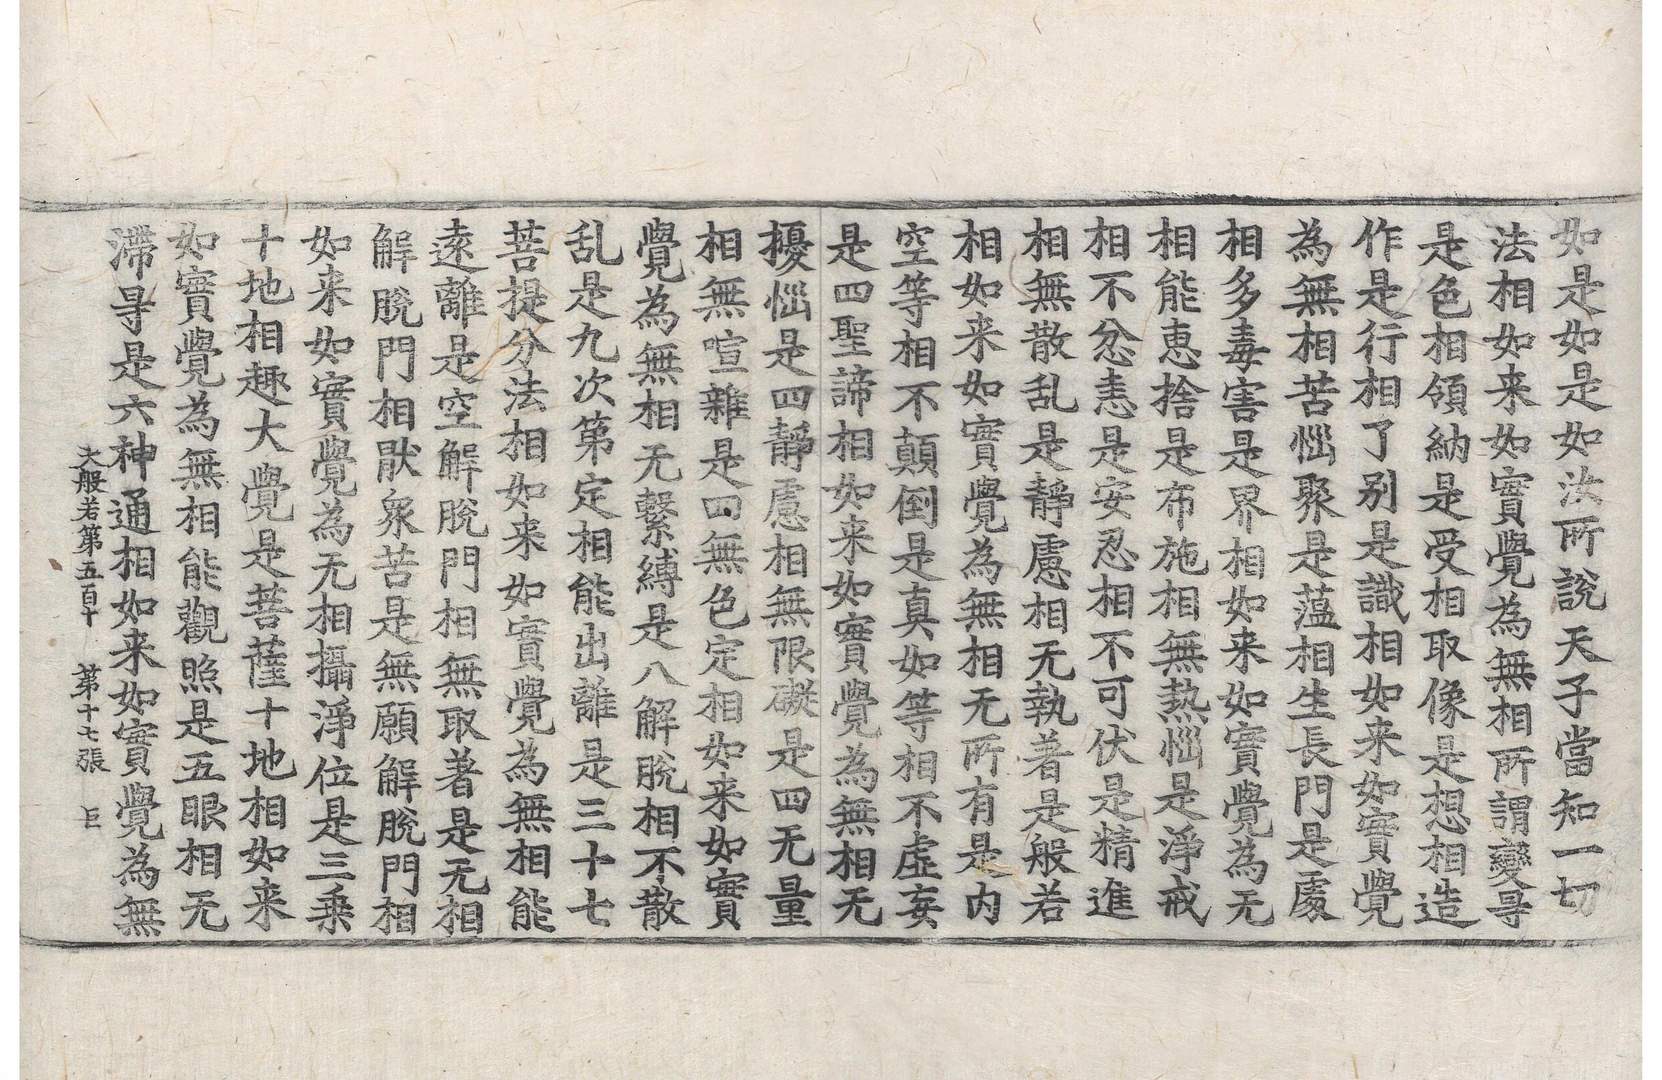 如是如是如汝所說天子當知一切
法相如来如實覺為無相所謂變㝵
是色相領納是受相取像是想相造
作是行相了别是識相如来如實覺
為無相苦惱聚是蕰相生長門是處
相多毒害是界相如来如實覺為无
相能惠捨是布施相無熱惱是淨戒
相不忿恚是安忍相不可伏是精進
相無散乱是靜慮相无執著是般若
相如来如實覺為無相无所有是内
空等相不顛倒是真如等相不虛妄
是四聖諦相如来如實覺為無相无
擾惱是四靜慮相無限礙是四无量
相無喧雜是四無色定相如来如實
覺為無相无繫縛是八解脫相不散
乱是九次第定相能出離是三十七
菩提分法相如来如實覺為無相能
遠離是空解脫門相無取著是无相
解脫門相猒衆苦是無願解脫門相
如来如實覺為无相攝淨位是三乗
十地相趣大覺是菩薩十地相如来
如實覺為無相能觀照是五眼相无
滯㝵是六神通相如来如實覺為無
大般若第五百十 第十七張 巨